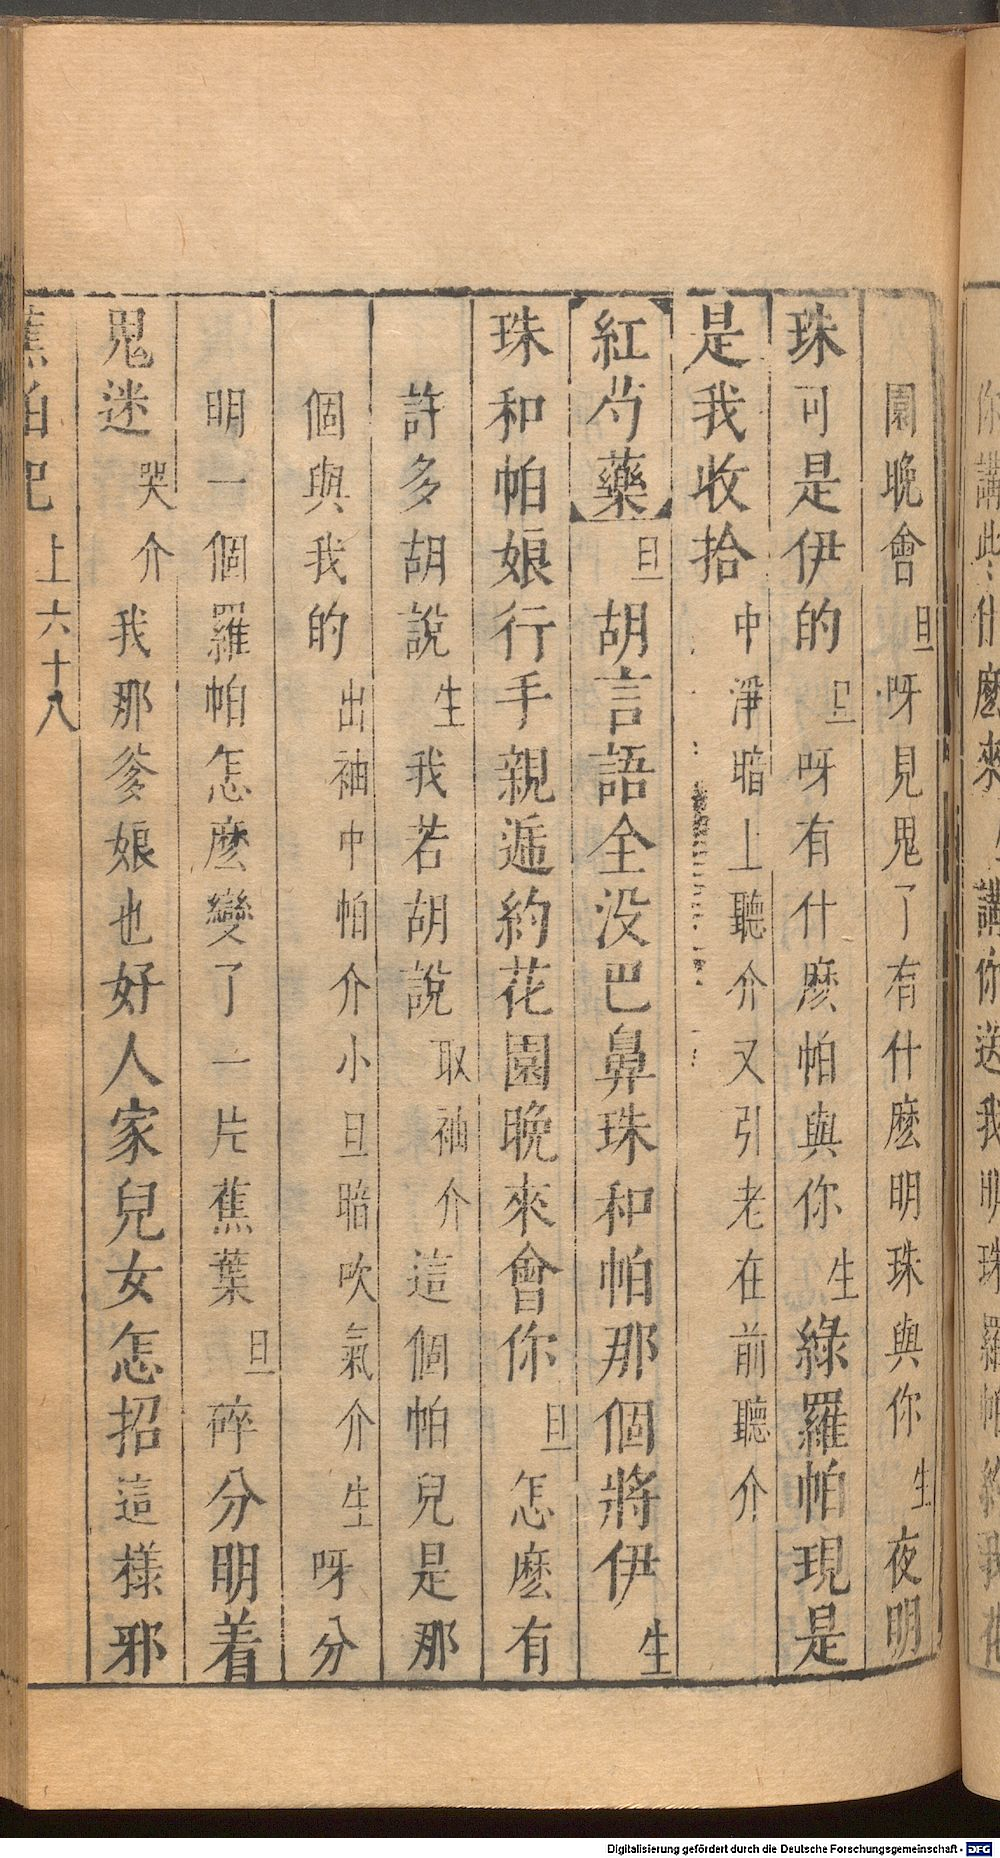 園晚會旦呀見鬼了有什麽明珠與你生夜明
珠可是伊的旦呀有什麽帕與你生綠羅帕現是
是我收拾中淨暗上聽介又引老在前聽介
紅芍藥旦胡言語全没巴鼻珠和帕那個將伊生
珠和帕娘行手親遞約花園晚來會你旦怎麽有
許多胡說生我若胡說取袖介這個帕兒是那
個與我的出袖中帕介小旦暗吹氣介生呀分
明一個羅帕怎麽變了一片蕉葉旦碎分明着
鬼迷哭介我那爹娘也好人家兒女怎招這樣邪
蕉帕記上六十八
講些什麽來生講你送我明珠羅帕約我花
Digitalisierung gefördert durch die Deutsche Forschungsgemeinschaft - DFG